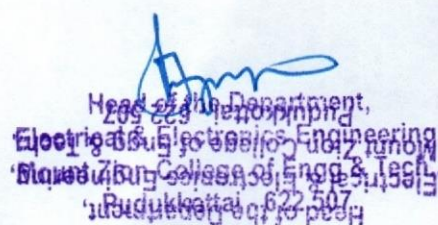 Head of the Department,
Electrical & Electronics Engineering
Mount Zion College of Engg & Tech,
Pudukkottai - 622 507